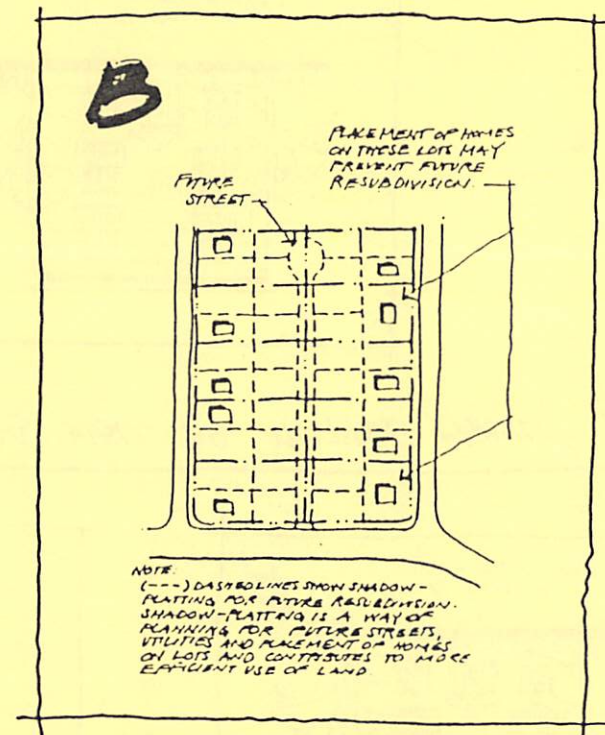 B
PLACEMENT OF HOMES
ON THESE LOTS MAY
PREVENT FUTURE
RESUBDIVISION.
FUTURE
STREET
NOTE:
(---) DASHED LINES SHOW SHADOW-
PLATTING FOR FUTURE RESUBDIVISION.
SHADOW-PLATTING IS A WAY OF
PLANNING FOR FUTURE STREETS,
UTILITIES AND PLACEMENT OF HOMES
ON LOTS AND CONTRIBUTES TO MORE
EFFICIENT USE OF LAND.